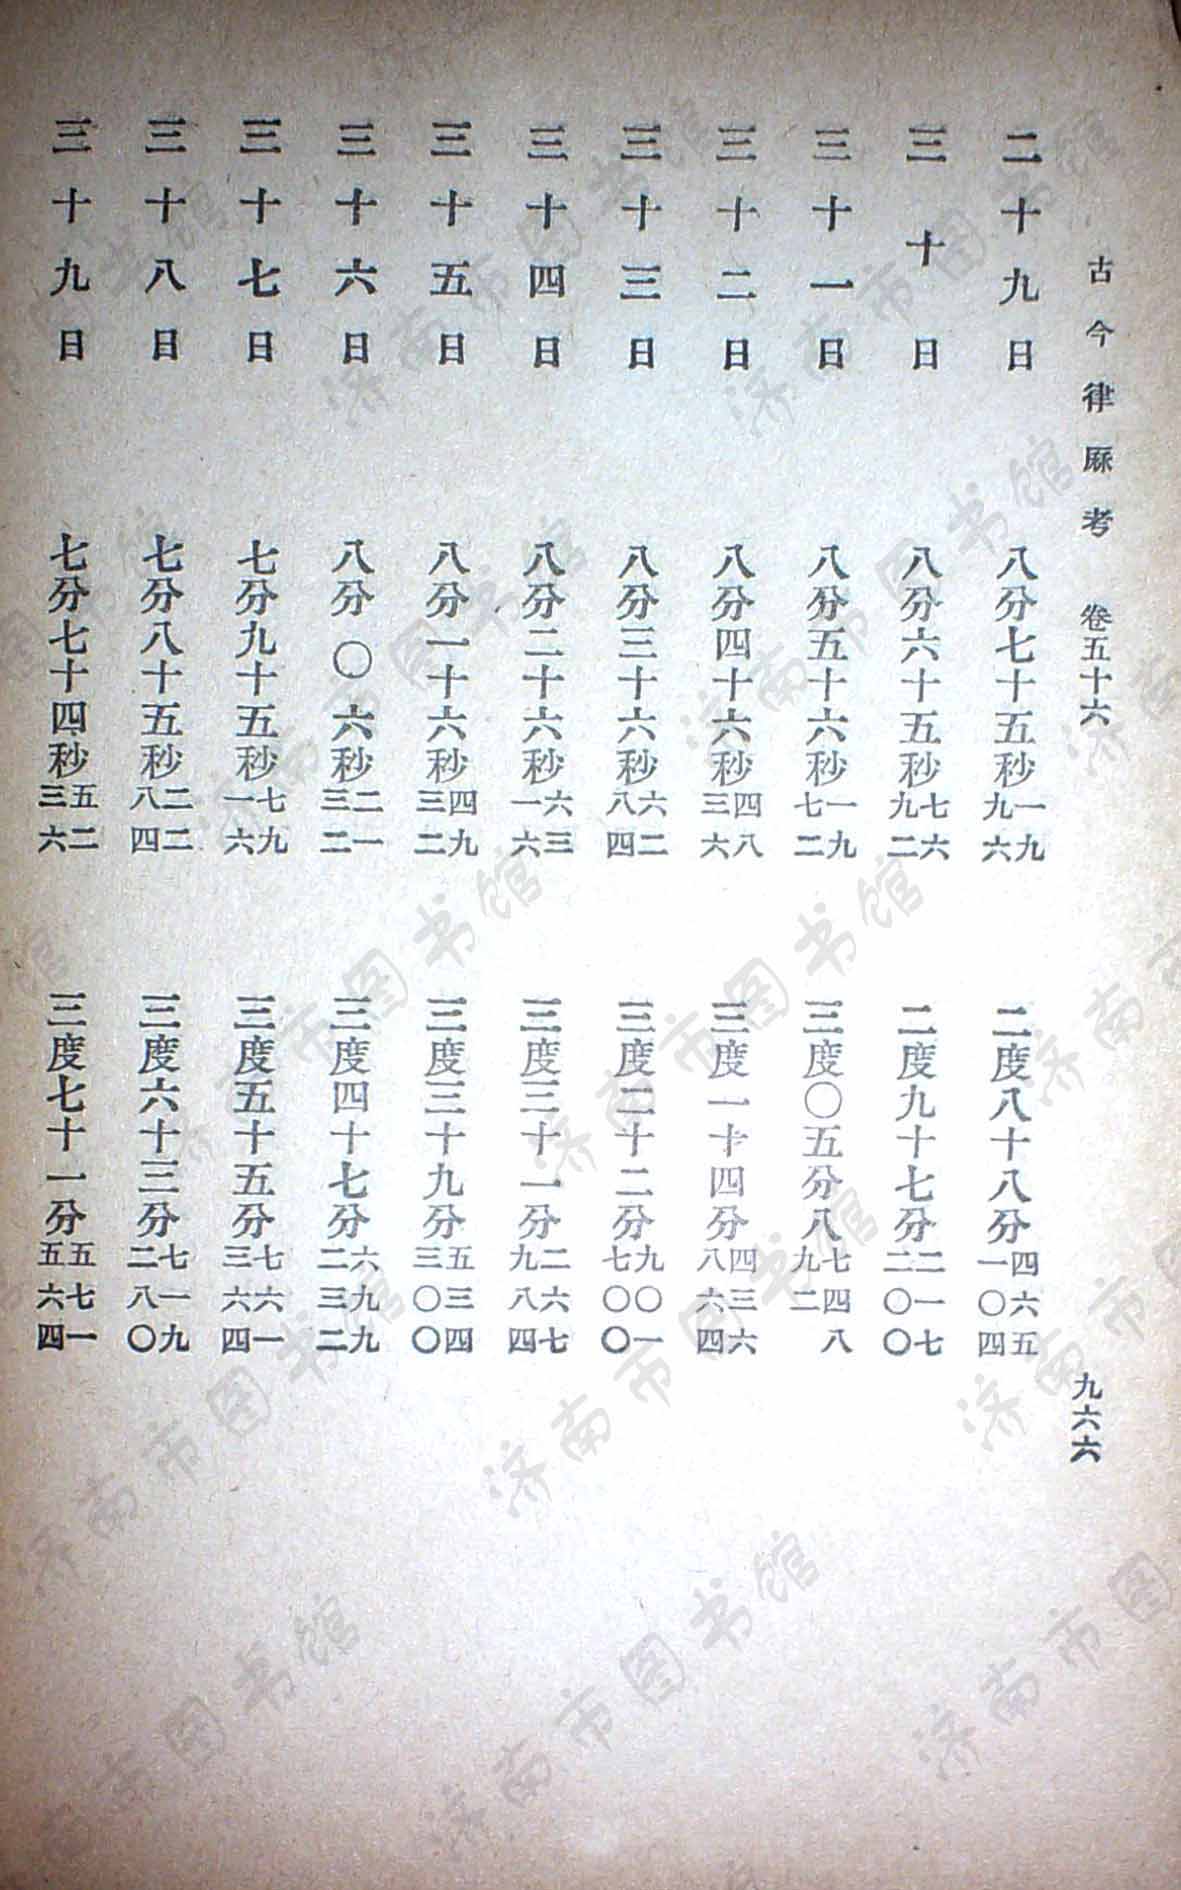 古今律厤考 卷五十六 九六六
二十九日 八分七十五秒一九九六 二度八十八分四六五一〇四
三十日 八分六十五秒七六九二 二度九十七分二一七二〇〇
三十一日 八分五十六秒一九七二 三度〇五分八七四八九二
三十二日 八分四十六秒四八三六 三度一十四分四三六八六四
三十三日 八分三十六秒六二八四 三度二十二分九〇一七〇〇
三十四日 八分二十六秒六三一六 三度三十一分二六七九八四
三十五日 八分一十六秒四九三二 三度三十九分五三四三〇〇
三十六日 八分〇六秒二一三二 三度四十七分六九九二三二
三十七日 七分九十五秒七九一六 三度五十五分七六一三六四
三十八日 七分八十五秒二二八四 三度六十三分七一九二八〇
三十九日 七分七十四秒五二三六 三度七十一分五七一五六四
济南市图书馆